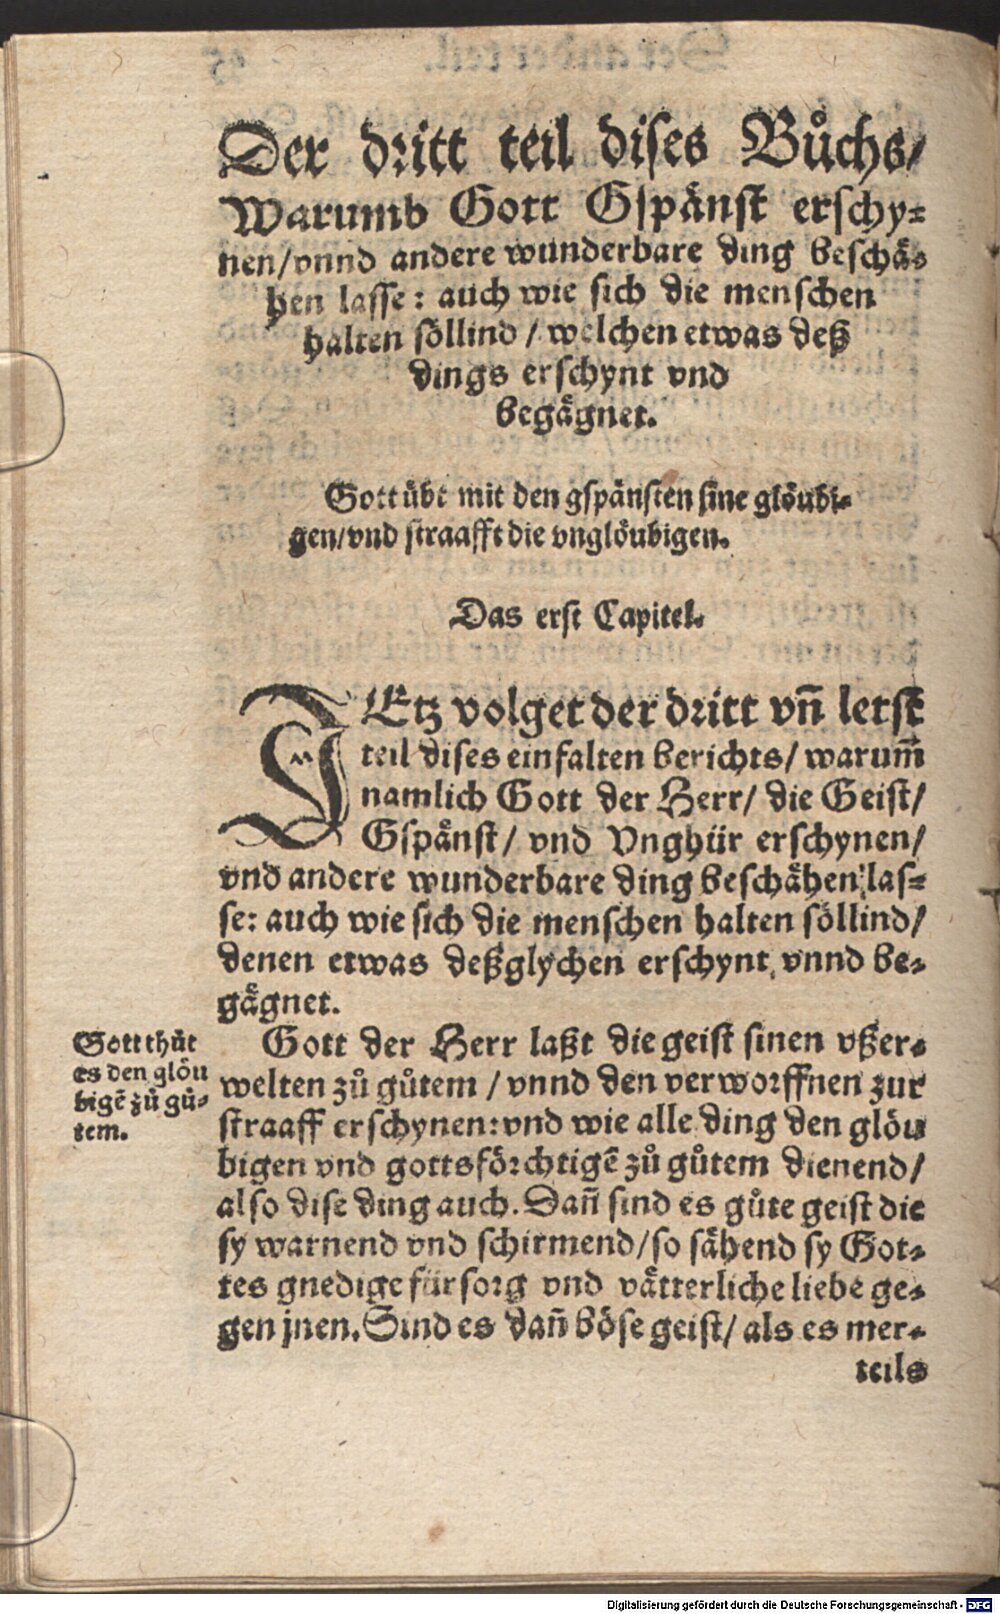 Der dritt teil dises Bůchs/
Warumb Gott Gspånst erschy⸗
nen/vnnd andere wunderbare ding beschå⸗
hen lasse: auch wie sich die menschen
halten söllind / welchen etwas deß
dings erschynt vnd
begågnet.
Gott übt mit den gspånsten sine glöubi⸗
gen/vnd straafft die vnglöubigen.
Das erst Capitel.
JEtz volget der dritt vñ letst
teil dises einfalten berichts/ warum̃
namlich Gott der Herr/ die Geist/
Gspånst/ vnd Vnghür erschynen/
vnd andere wunderbare ding beschåhen las⸗
se: auch wie sich die menschen halten söllind/
denen etwas deßglychen erschynt, vnnd be⸗
gågnet.
Gott der Herr laßt die geist sinen vßer⸗
welten zů gůtem / vnnd den verworffnen zur
straaff erschynen: vnd wie alle ding den glöu
bigen vnd gottsförchtigẽ zů gůtem dienend/
also dise ding auch. Dañ sind es gůte geist die
sy warnend vnd schirmend/so såhend sy Got⸗
tes gnedige fürsorg vnd våtterliche liebe ge⸗
gen jnen. Sind es dañ böse geist/ als es mer⸗
teils
Gott thůt
es den glöu
bigẽ zů gů⸗
tem.
Digitalisierung gefördert durch die Deutsche Forschungsgemeinschaft - DFG